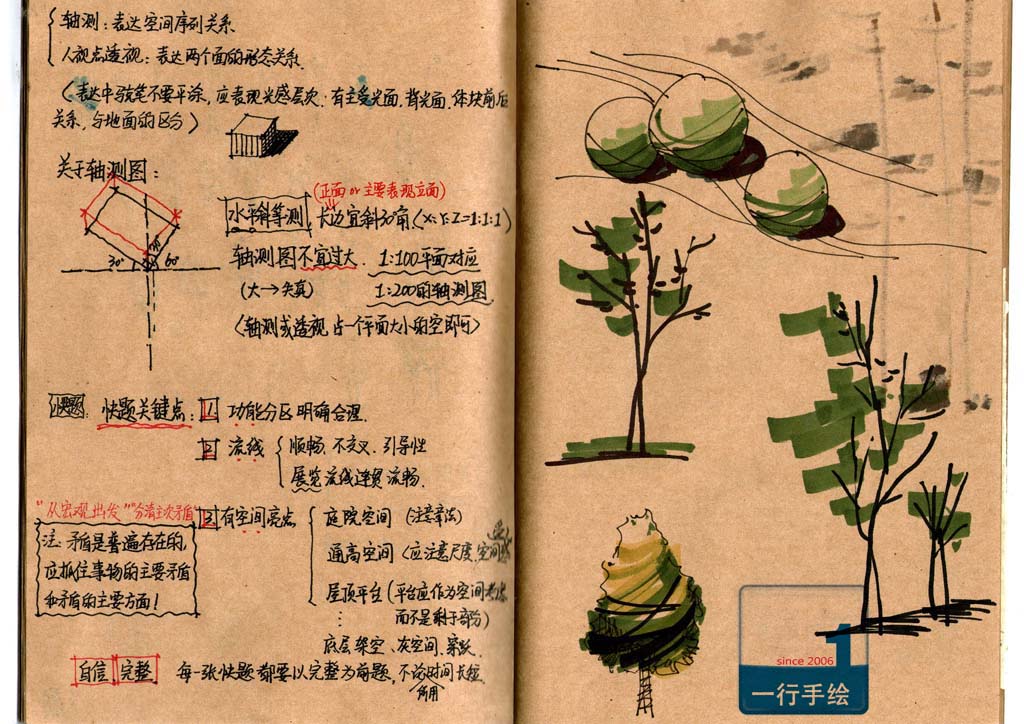 轴测：表达空间序列关系
人视点透视：表达两个面的形态关系.
关系，与地面的区分〉
关于轴测图：
(正面 or 主要表现立面)
水平斜等测 (X:Y:Z=1:1:1)
轴测图不宜过大. 1:100平面对应
(大→失真) 1:200的轴测图.
〈轴测或透视 占一个平面大小的空即可〉
30° 60°
快题： 快题关键点： 1. 功能分区明确合理.
2. 流线 顺畅、不交叉、引导性
展览流线连贯流畅.
"从宏观出发""分清主次矛盾"
3. 有空间亮点 庭院空间 (注意章法)
注：矛盾是普遍存在的,
应抓住事物的主要矛盾
和矛盾的主要方面！
通高空间〈应注意尺度,空间
屋顶平台(平台应作为空间
而不是剩于部分)
⋮
底层架空、灰空间、
自信 完整 每一张快题都要以完整为前题, 不论所用时间长短.
since 2006
1
一行手绘